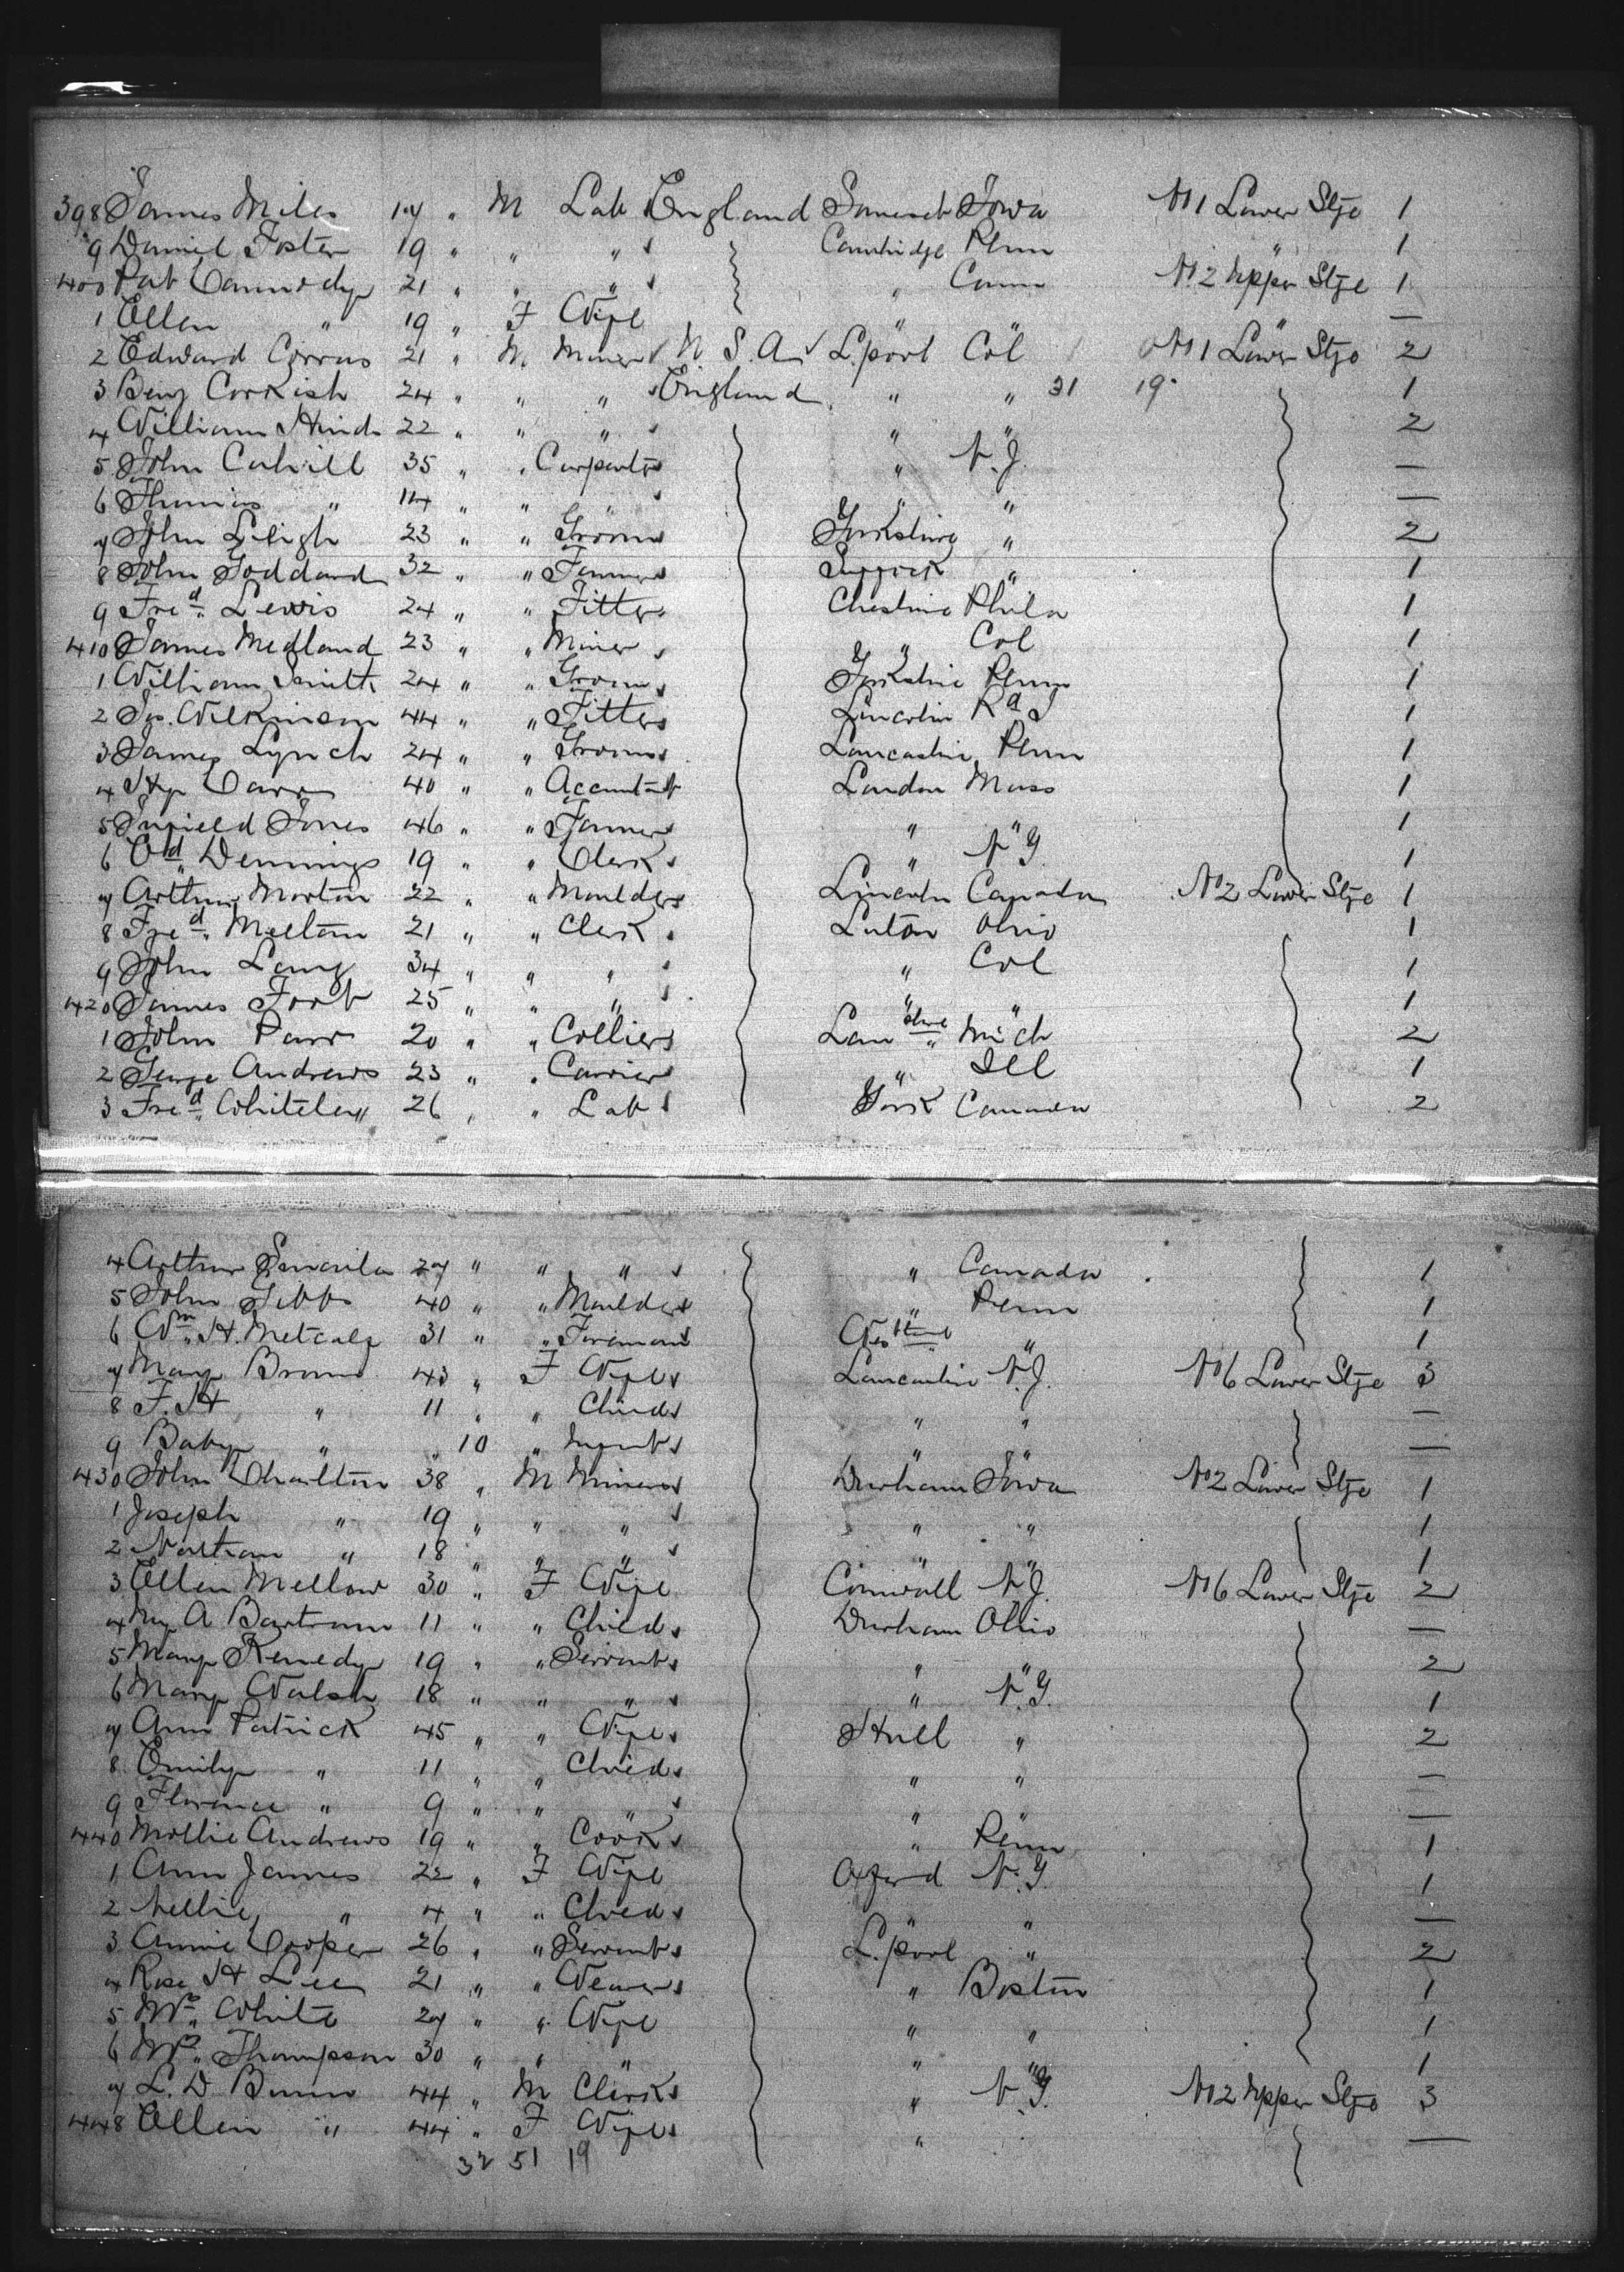 398 James Miles 17 " M Lab England Somerset Iowa No 1 Lower Stge 1
9 Daniel Foster 19 " " " Cambridge Penn " 1
400 Pat 21 " " " " Conn No 2 Upper Stge 1
1 Ellen " 19 " F Wife " " " —
2 Edward 21 " M Miner U.S.A L.pool Col No 1 Lower Stge 2
3 Benj Corkish 24 " " " England " " 31 19 1
4 William Hinds 22 " " " " " 2
5 John Cahill 35 " " Carpenter " N.J. —
6 Thomas " 14 " " " " " —
7 John Leligh 23 " " Groom Yorkshire " 2
8 John Goddard 32 " " Farmer Suffolk " 1
9 Fred. Lewis 24 " " Fitter Cheshire Phila 1
410 James Medland 23 " " Miner " Col 1
1 William Smith 24 " " Groom Yorkshire Penn 1
2 Jos. Wilkinson 44 " " Fitter Lincoln Rd I 1
3 James Lynch 24 " " Groom Lancashire Penn 1
4 Hy Carr 40 " " Accountant London Mass 1
5 Jones 46 " " Farmer " " 1
6 Dennings 19 " " Clerk " N.Y. 1
7 Arthur Morton 22 " " Moulder Lincoln Canada No 2 Lower Stge 1
8 Fred. Melton 21 " " Clerk Luton Ohio 1
9 John Lang 34 " " " " Col 1
420 James Foot 25 " " " " " 1
1 John Parr 20 " " Collier Lanshire Mich 2
2 George Andrews 23 " " Carrier " Ill 1
3 Fred. Whiteley 26 " " Lab York Canada 2
4 Arthur 27 " " " " Canada 1
5 John Gibbs 40 " " Moulder " Penn 1
6 Wm. H. Metcalf 31 " " Foreman " 1
7 Mary Brown 43 " F Wife Lancashire N.J. No 6 Lower Stge 3
8 F. H " 11 " " Child " " —
9 Baby " " 10 " Infant " " —
430 John Charlton 38 " M Miner Durham Iowa No 2 Lower Stge 1
1 Joseph " 19 " " " " " 1
2 " 18 " " " " " 1
3 Ellen Mellow 30 " F Wife Cornwall N.J. No 6 Lower Stge 2
4 My A Bartram 11 " " Child Durham Ohio —
5 Mary Kenedy 19 " " Servant " " 2
6 Mary Walsh 18 " " " " N.Y. 1
7 Ann Patrick 45 " " Wife Hull " 2
8 Emily " 11 " " Child " " —
9 Florence " 9 " " " " " —
440 Mollie Andrews 19 " " Cook " Penn 1
1 Ann James 22 " F Wife Oxford N.Y. 1
2 Nellie " 4 " " Child " " —
3 Annie Cooper 26 " " Servant L.pool " 2
4 Rose H Lee 21 " " Weaver " Boston 1
5 Mrs. White 27 " " Wife " " 1
6 Mrs. Thompson 30 " " " " " 1
7 L. D 44 " M Clerk " N.Y. No 2 Upper Stge 3
448 Ellen " 44 " F Wife " —
32 51 19